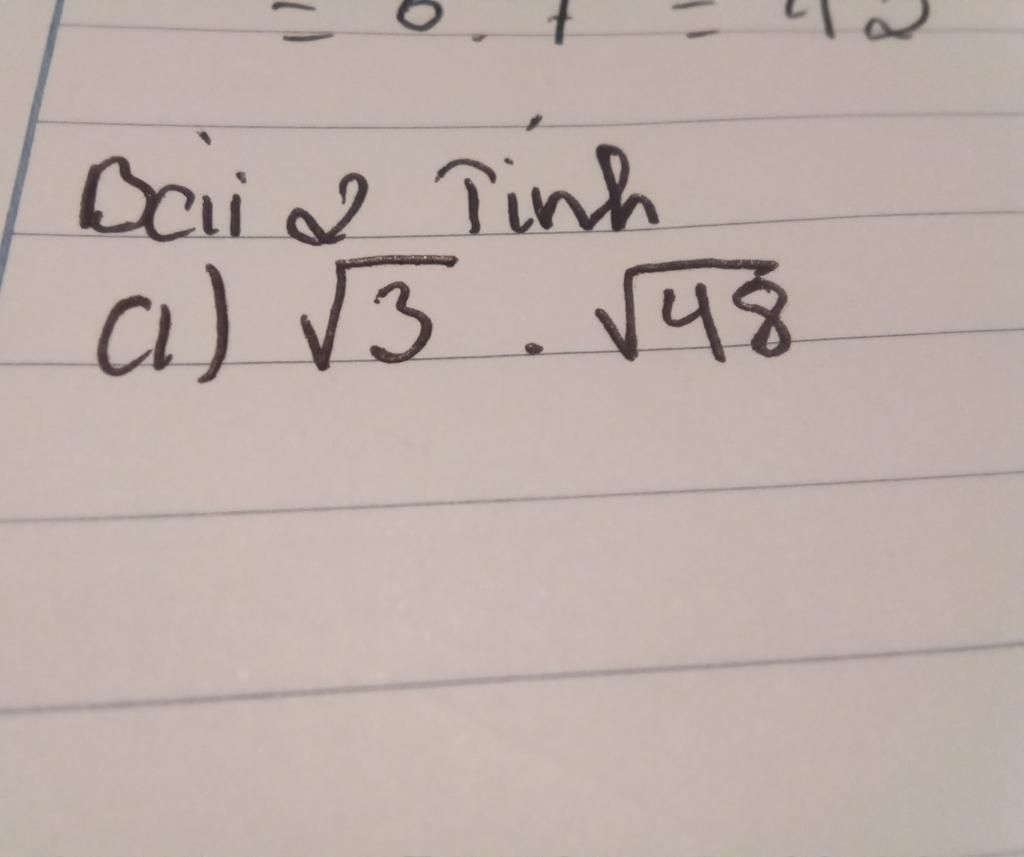 = 6 . 7 = 42
Bài 2 Tính
a) √3 . √48